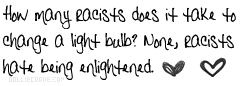 How many racists does it take to
change a light bulb? None, racists
hate being enlightened.